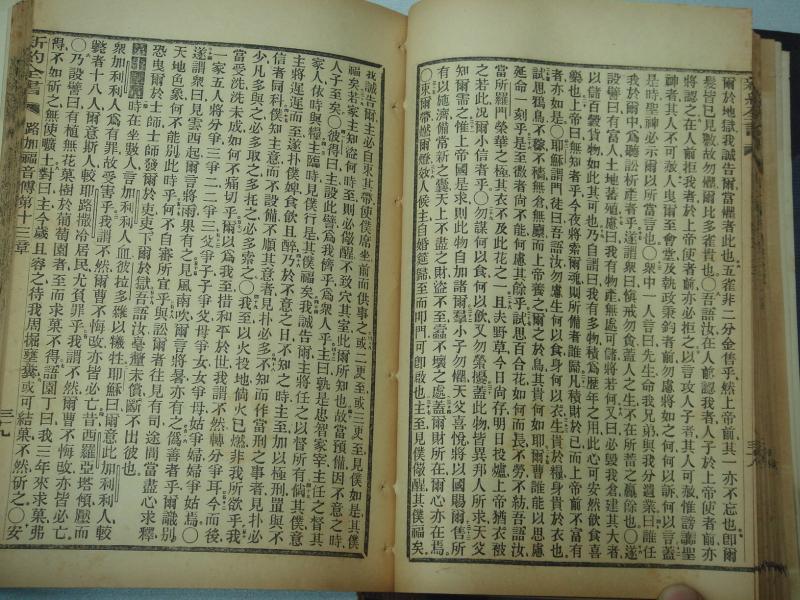 新約全書
爾於地獄我誠告爾當懼者此也五雀非二分金售乎然上帝前其一亦不忘也卽爾
髮皆已見數故勿懼爾比多雀貴也〇吾語汝在人前認我者人子於上帝使者前亦
將認之在人前拒我者於上帝使者前亦必拒之以言攻人子者其人可赦惟謗讟聖
神者其人不可赦人曳爾至會堂及執政秉鈞者前勿慮將如之何何以訴何以言蓋
是時聖神必示爾以所當言也〇衆中一人言曰先生命我兄弟與我分遺業曰誰任
我於爾中爲聽訟析產者乎遂謂衆曰愼戒勿貪蓋人之生不在所蓄之贏餘也〇遂
設譬曰有富人土地蕃殖慮曰我有物產無處可儲將若何又曰必毀我倉建其大者
以儲百穀貨物如此其可也乃自謂曰我有多物積爲歷年之用此心可安然飲食喜
樂也上帝曰無知者乎今夜將索爾魂則所備者誰歸凡積財於己而上帝前不富有
者亦如是〇耶穌謂門徒曰吾語汝勿慮生何以食身何以衣生貴於糧身貴於衣也
試思鴉鳥不稼不穡無倉無廒而上帝養之爾之於鳥其貴何如耶爾曹誰能以思慮
延命一刻乎是至微者尚不能何慮其餘乎試思百合花如何而長不勞不紡吾語汝
當所羅門榮華之極其衣不及此花之一且夫野草今日尚存明日投爐上帝猶衣被
之若此況爾小信者乎〇勿謀何以食何以飲又勿縈擾蓋此物皆異邦人所求天父
知爾需之惟上帝國是求則此物自加諸爾羣小子勿懼天父喜悅將以國賜爾售所
有以施濟備常新之囊天上不盡之財盜不至蠹不壞之處蓋爾財所在爾心亦在焉
〇束爾帶燃爾燈效人候主自婚筵歸至而叩門可卽啟也主至見僕儆醒其僕福矣
我誠告爾主必自束其帶使僕席坐前而供事之或二更至或三更至見僕如是其僕
福矣若家主知盜何時至則必儆醒不致穴其室此爾所知也故當預備因不意之時
人子至矣〇彼得曰主設此譬爲我儕乎爲衆人乎主曰孰是忠智家宰主任之督其
家人依時與糧主臨時見僕行是其僕福矣我誠告爾主將任之以督所有倘其僕意
主將遲遲而至遂扑僕婢食飲且醉乃於不意之日不知之時主至加以極刑置與不
信者同科僕知主意而不設備不順其意者見扑必多不知而作當刑之事者見扑必
少凡多與之必多取之多托之必多索之〇我至以火投地倘火已燃非我所欲乎我
當受洗洗未成如何不痛切乎爾以爲我至措和平於世我謂不然轉分爭耳今而後
一家五人將分爭三爭二二爭三父爭子子爭父母爭女女爭母姑爭婦婦爭姑焉〇
遂謂衆曰見雲西起爾言將雨果有之見風南吹爾言將暑亦有之僞善者乎爾識別
天地色象何不能別此時乎何不自審所宜乎與訟爾者往見有司途間當盡心求釋
恐曳爾於士師士師發爾於吏吏下爾於獄吾語汝毫釐未償斷不出彼也
時在坐數人言加利利人血彼拉多雜以犧牲耶穌曰爾意此加利利人較
衆加利利人爲有罪故受害乎我謂不然爾曹不悔改亦皆必亡昔西羅亞塔傾壓而
斃者十八人爾意斯人較耶路撒冷居民尤負罪乎我謂不然爾曹不悔改亦皆必亡
〇乃設譬曰有植無花果樹於葡萄園者至而求果不得語園丁曰我三年來求菓弗
得不如斫之無使曠土對曰主今歲且容之待我周掘壅糞或可結菓不然斫之〇安
新約全書
路加福音傳第十三章
三十九